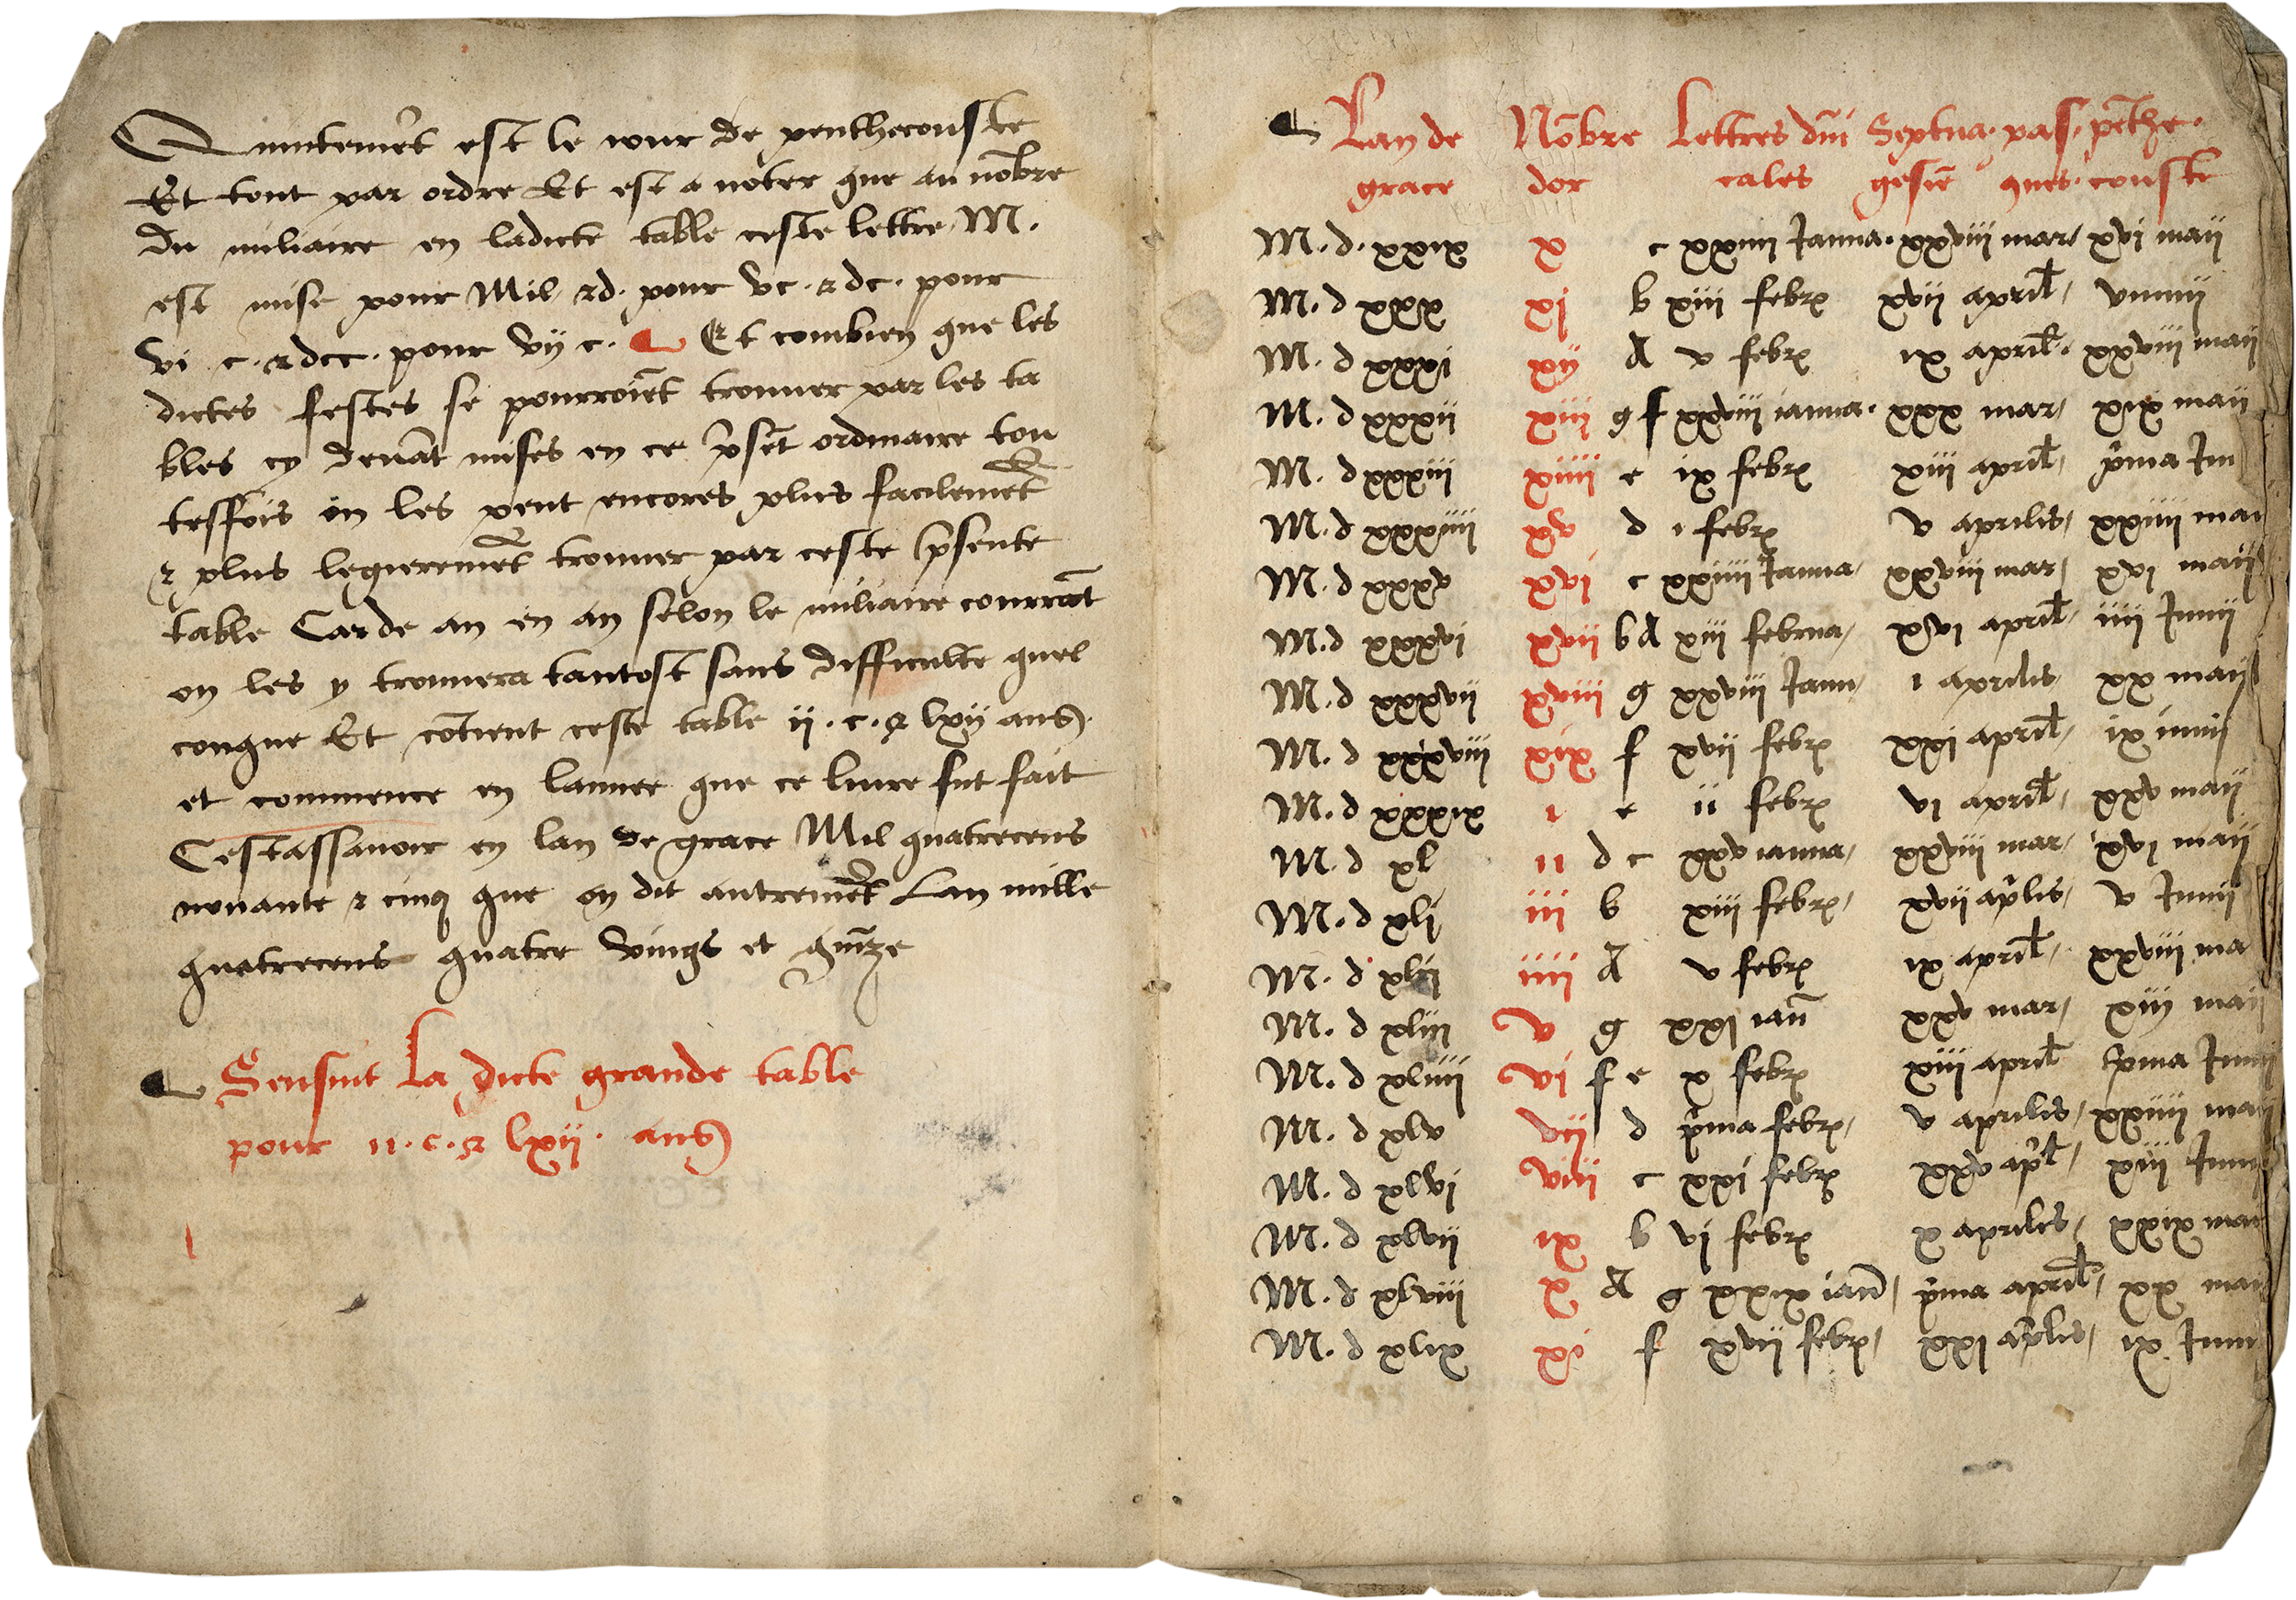 Quintemẽt est le iour de penthecouste
Et tout par ordre Et est a noter que au nõbre
du miliaire en ladicte table ceste lettre M.
est mise pour Mil, ⁊ d. pour vc. ⁊ dc. pour
vi c. ⁊ dcc. pour vij c. Et combien que les
dictes festes se pourroiẽt trouuer par les ta
bles cy deuãt mises en ce p̃sẽt ordinaire tou
teffois on les peut encores plus facilemẽt
⁊ plus legieremẽt trouuer par ceste p̃sente
table Car de an en an selon le miliaire courrãt
on les y trouuera tantost sans difficulte quel
conque Et cõtient ceste table ii. c. ⁊ lxij ans.
et commence en lannee que ce liure fut fait
Cestassauoir en lan de grace Mil quatrecens
nonante ⁊ cinq que on dit autremẽt Lan mille
quatrecens quatre vings et quĩze
Sensuit la dicte grande table
pour ii. c. ⁊ lxii. ans
Lan de Nõbre Lettres dñi Septua. pas. pẽthe.
grace dor cales gesiẽ ques. couste
M. d. xxix x c xxiiii Janua. xxviii mar, xvi maii
M. d xxx xj b xiii febrꝭ xvii april, v iunii
M. d xxxi xij A v febrꝭ ix april. xxviii maii
M. d xxxii xiii g f xxviii ianua. xxx mar, xix maii
M. d xxxiii xiiii e ix febrꝭ xiii april, p̃ma Iu
M. d xxxiiii xv d i febrꝭ v aprilis, xxiiii mai
M. d xxxv xvi c xxiiii Janua, xxviii mar, xvi maii
M. d xxxvi xvii b A xiii februa, xvi april, iiii Iunii
M. d xxxvii xviii g xxviii Janu, i aprilis, xx maii
M. d xxxviii xix f xvii febrꝭ xxi april, ix iunii
M. d xxxix i e ii febrꝭ vi april, xxv maii
M. d xl ii d c xxv ianua, xxviii mar, xvi maii
M. d xli iii b xiii febrꝭ, xvii ap̃lis, v Iunii
M. d xlii iiii A v febrꝭ ix april, xxviii ma
M. d xliii v g xxi iañ xxv mar, xiij maii
M. d xliiii vi f e x febrꝭ xiii april p̃ma Iunii
M. d xlv vij d p̃ma febrꝭ, v aprilis, xxiiii maii
M. d xlvi viii c xxi febrꝭ xxv ap̃l, xiii Iunii
M. d xlvii ix b vi febrꝭ x apriles, xxix mai
M. d xlviii x A g xxix iañ, p̃ma april, xx mai
M. d xlix xi f xvii febrꝭ, xxi ap̃lis, ix Iunii